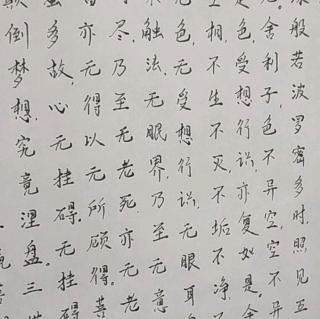 般若波罗密多时,照见五
舍利子,色不异空,空不异
色,受想行识,亦复如是。
相,不生不灭,不垢不净,
色,无受想行识,无眼耳
触法,无眼界,乃至无意
尽,乃至无老死,亦无老
亦无得以无所顾得。菩
多故,心无挂碍。无挂碍
倒梦想,究竟涅盘。三世